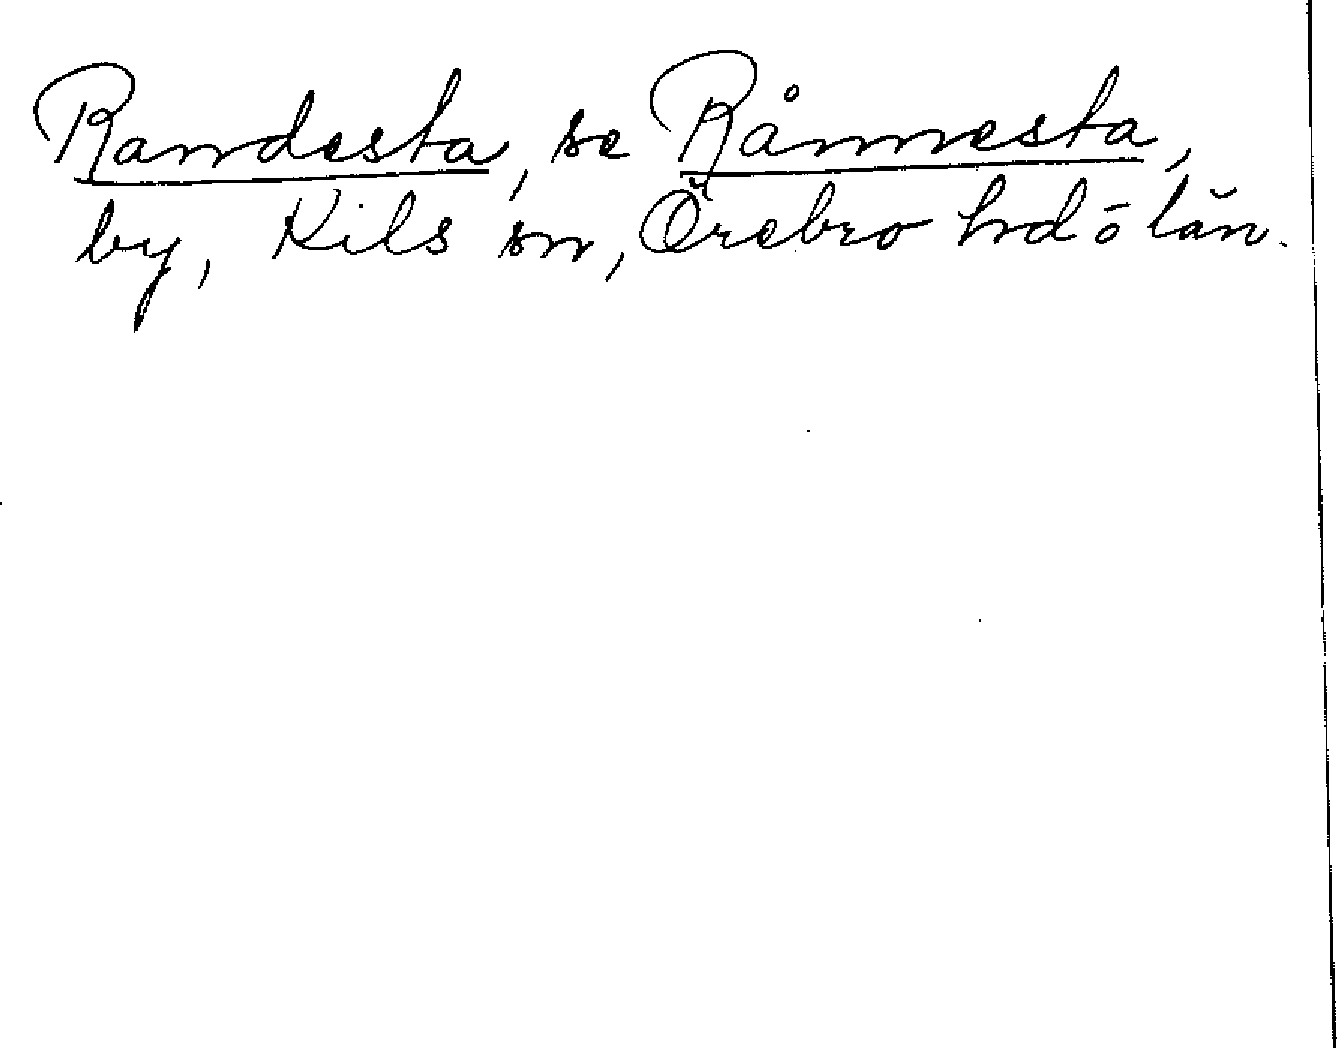 Randesta, se Rånnesta,
by, Kils sn, Örebro hd o län.